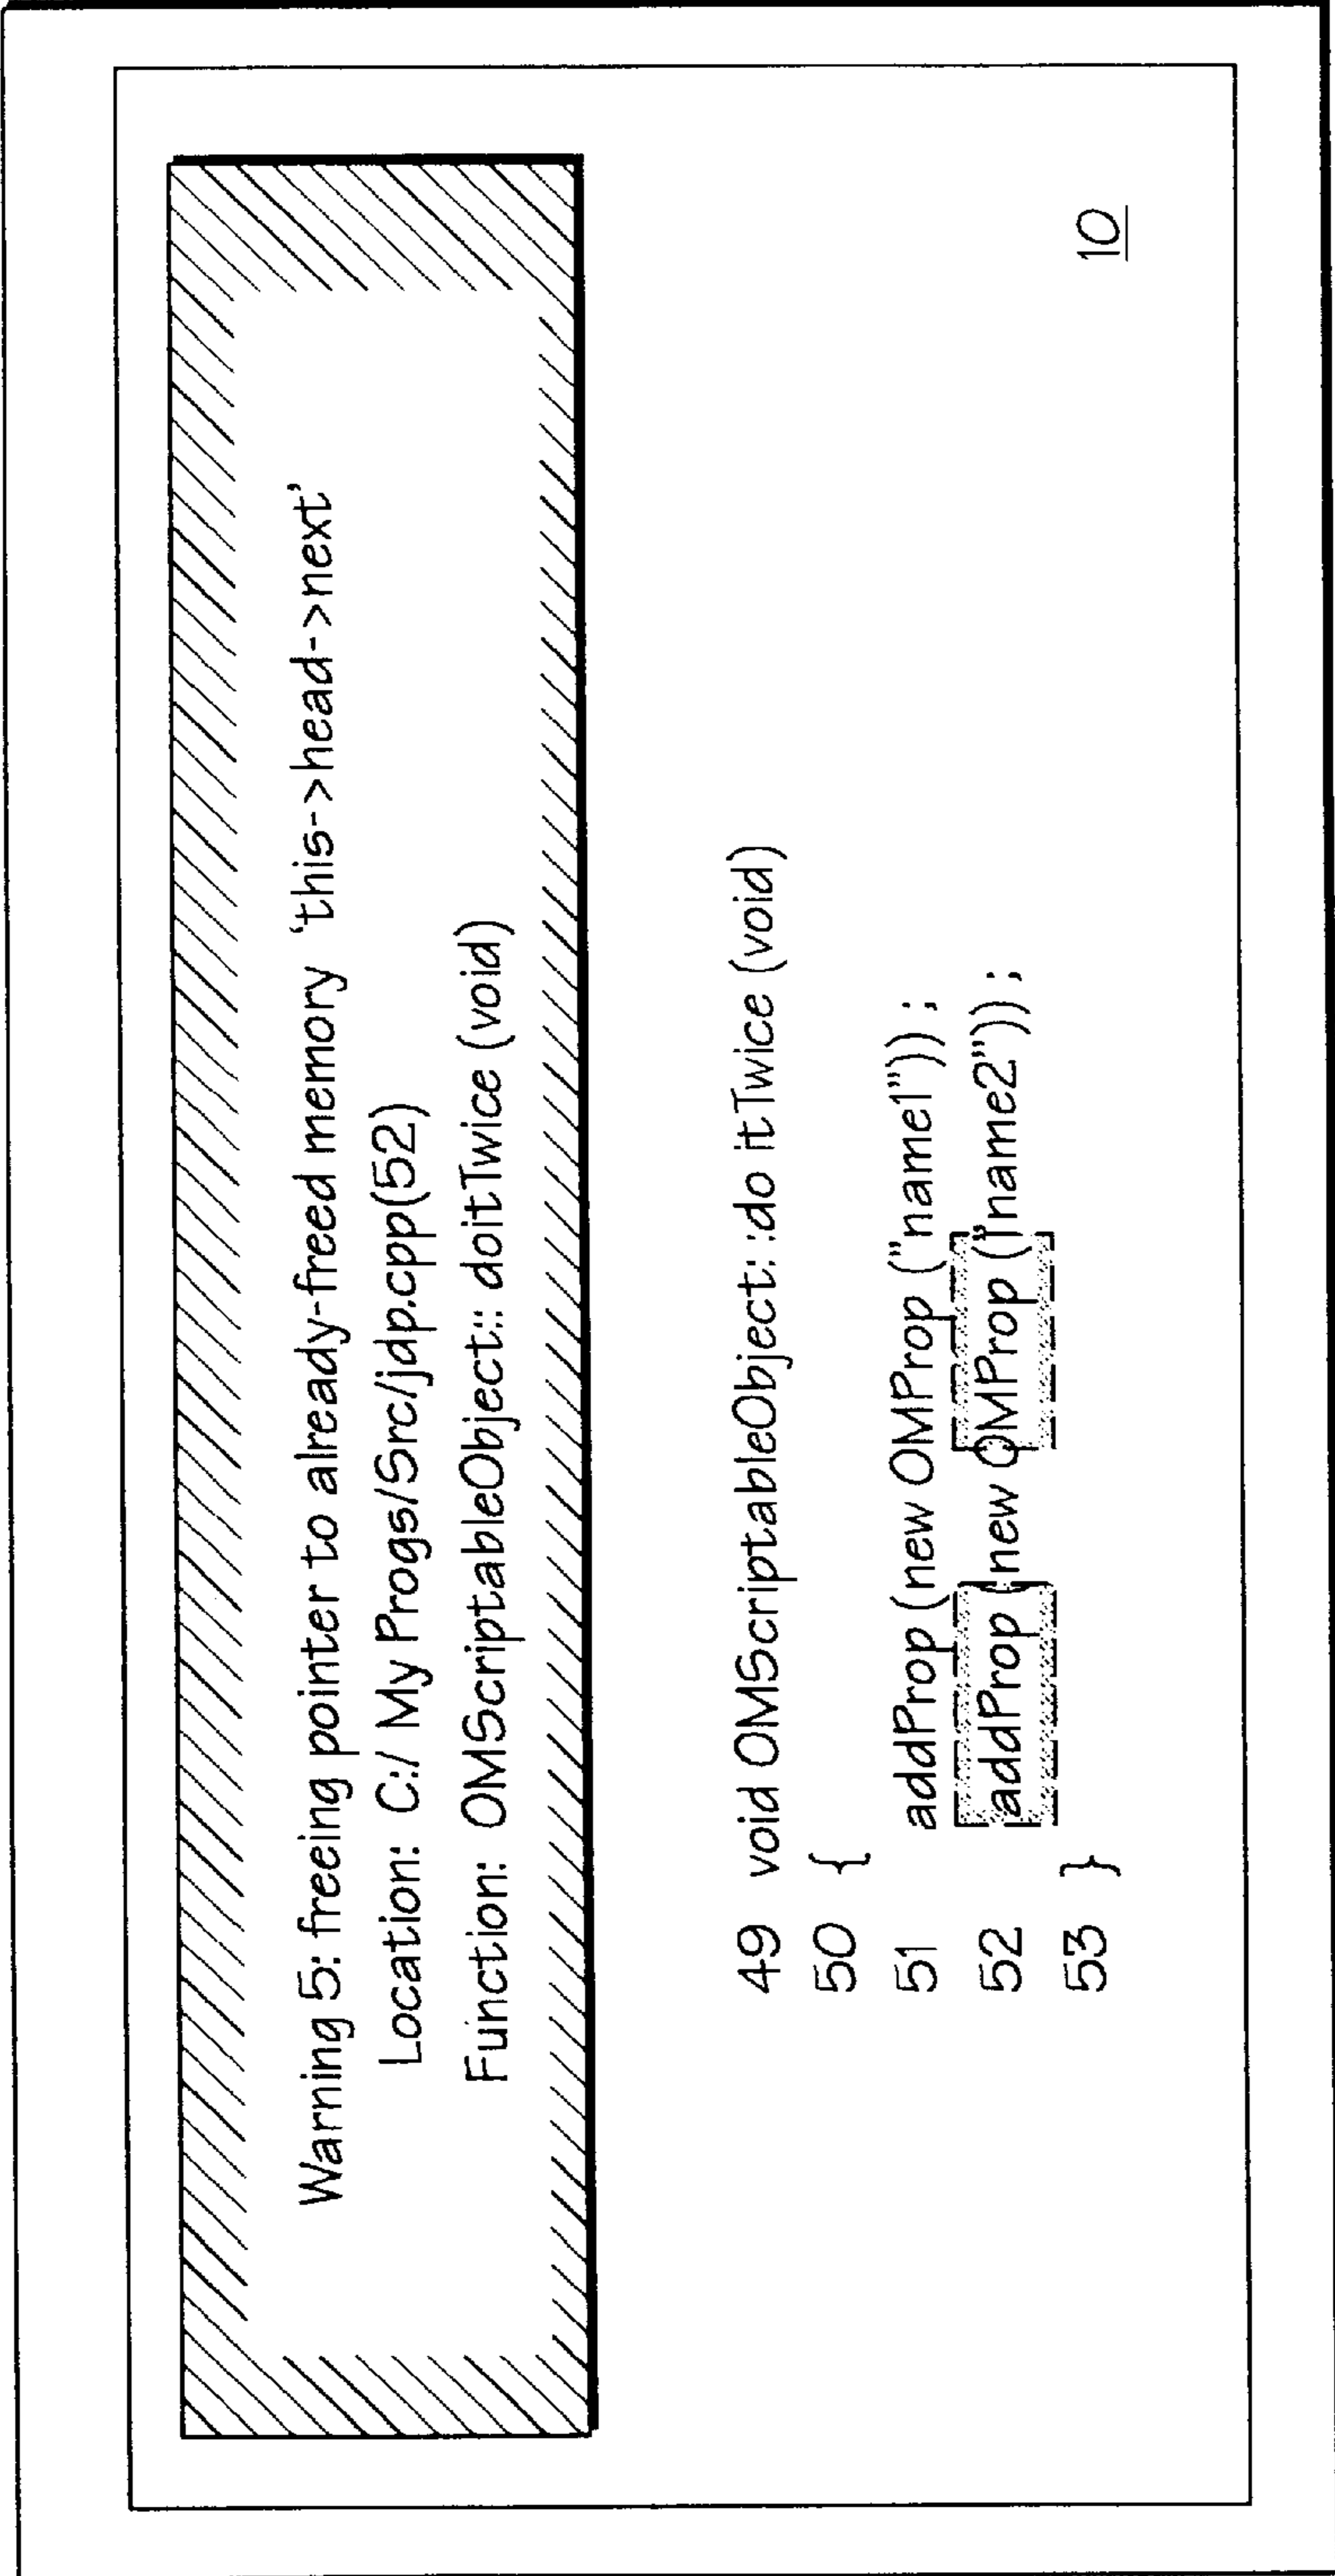 Warning 5: freeing pointer to already-freed memory ‘this->head->next’
Location: C:/ My Progs/Src/jdp.cpp(52)
Function: OMScriptableObject:: doitTwice (void)
49 void OMScriptableObject: :do itTwice (void)
50 {
51 addProp (new OMProp ("name1")) ;
52 addProp (new OMProp ("name2")) ;
53 }
10